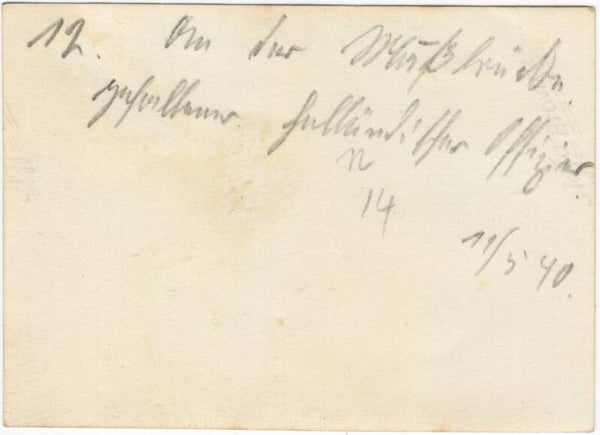 12. An der Maßbrücke.
gefallener holländischer Offizier.
N
14
11/5 40.